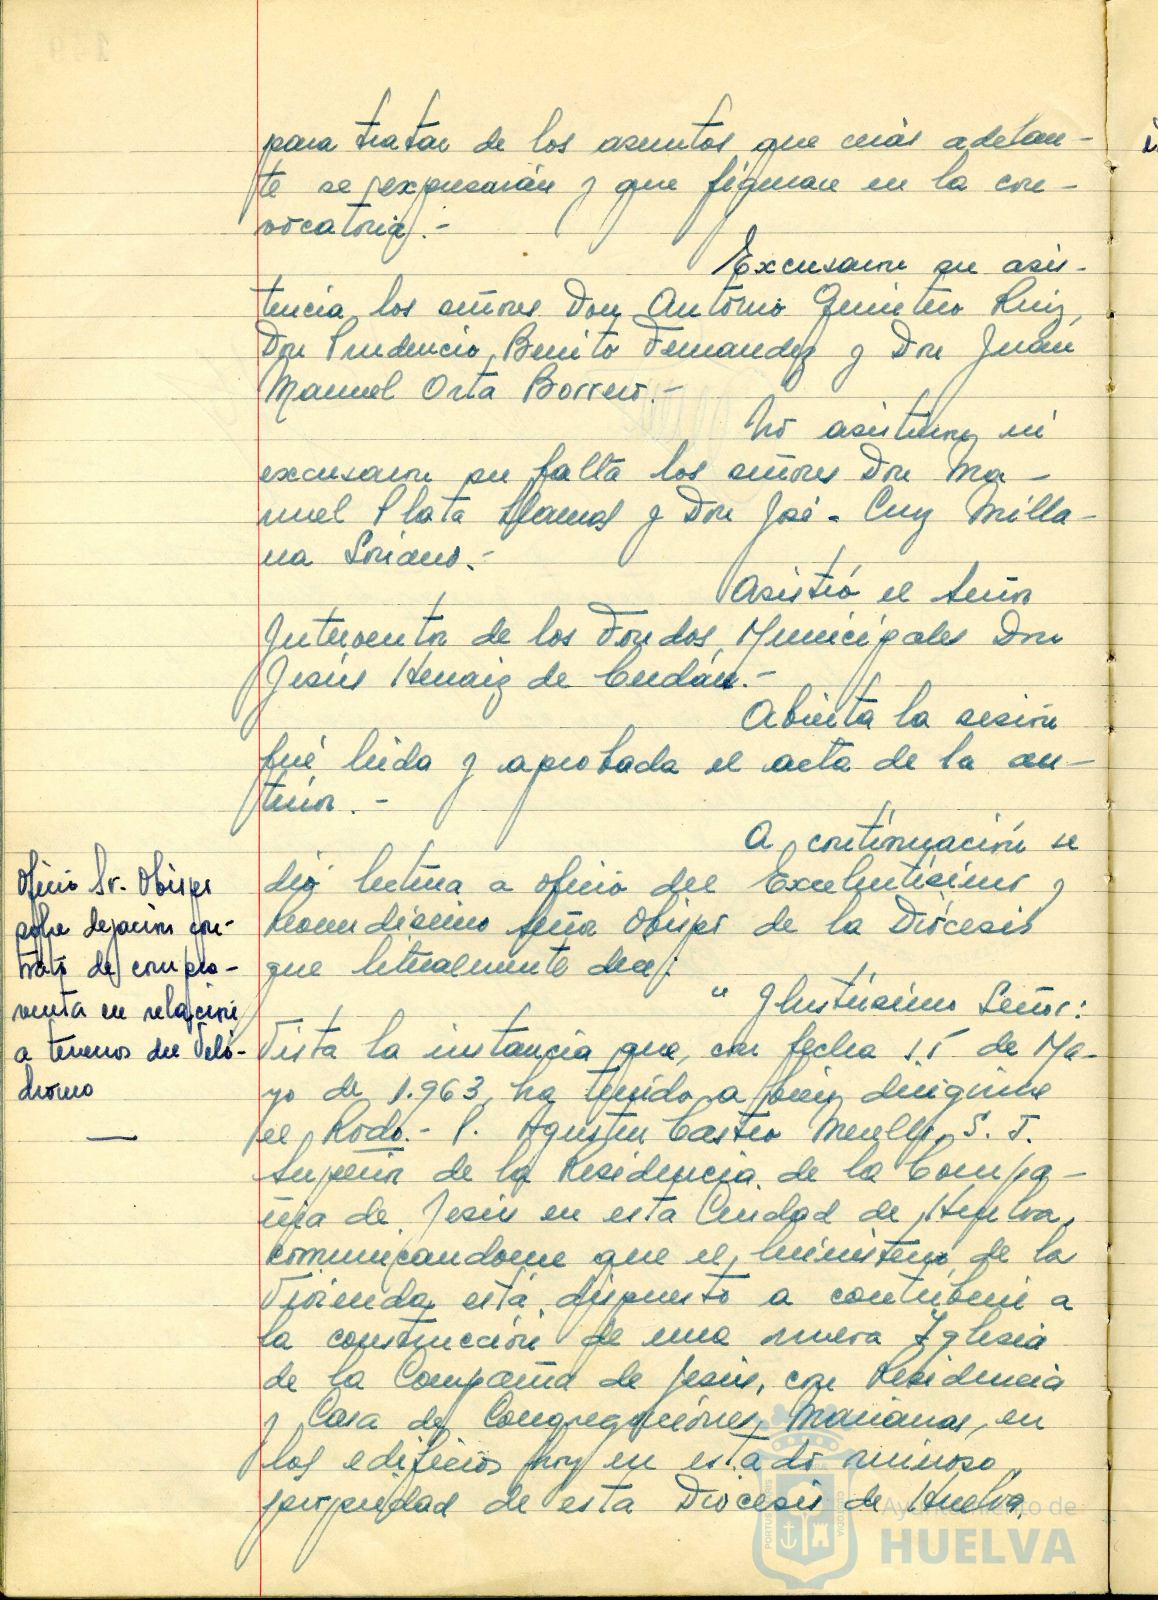 para tratar de los asuntos que más adelan-
te se expresarán y que figuran en la con-
vocatoria.-
Excusaron su asis-
tencia los señores Don Antonio Quintero Ruiz,
Don Prudencio Benito Fernandez y Don Juan
Manuel Orta Borrero.-
No asistieron ni
excusaron su falta los señores Don Ma-
nuel Plata Llamas y Don José-Cruz Milla-
na Soriano.-
Asistió el Señor
Interventor de los Fondos Municipales Don
Jesús Hernaiz de
Abierta la sesión
fué leida y aprobada el acta de la an-
terior.-
A continuación se
dió lectura a oficio del Excelentísimo y
Reverendísimo Señor Obispo de la Diócesis
que literalmente dice:
Oficio Sr. Obispo
sobre dejación con-
trato de compra-
venta en relación
a terrenos del Veló-
dromo
—
" Ilustrísimo Señor:
Vista la instancia que, con fecha 15 de Ma-
yo de 1.963, ha tenido a bien dirigirme
el Rvdo.- P. Agustín Castro Merello, S. J.
Superior de la Residencia de la Compa-
ñia de Jesús en esta Ciudad de Huelva,
comunicandome que el Ministerio de la
Vivienda está dispuesto a contribuir a
la construcción de una nueva Iglesia
de la Compañía de Jesús, con Residencia
y Casa de Congregaciones Marianas, en
los edificios hoy en estado ruinoso,
propiedad de esta Diócesis de Huelva,
Ayuntamiento de
HUELVA